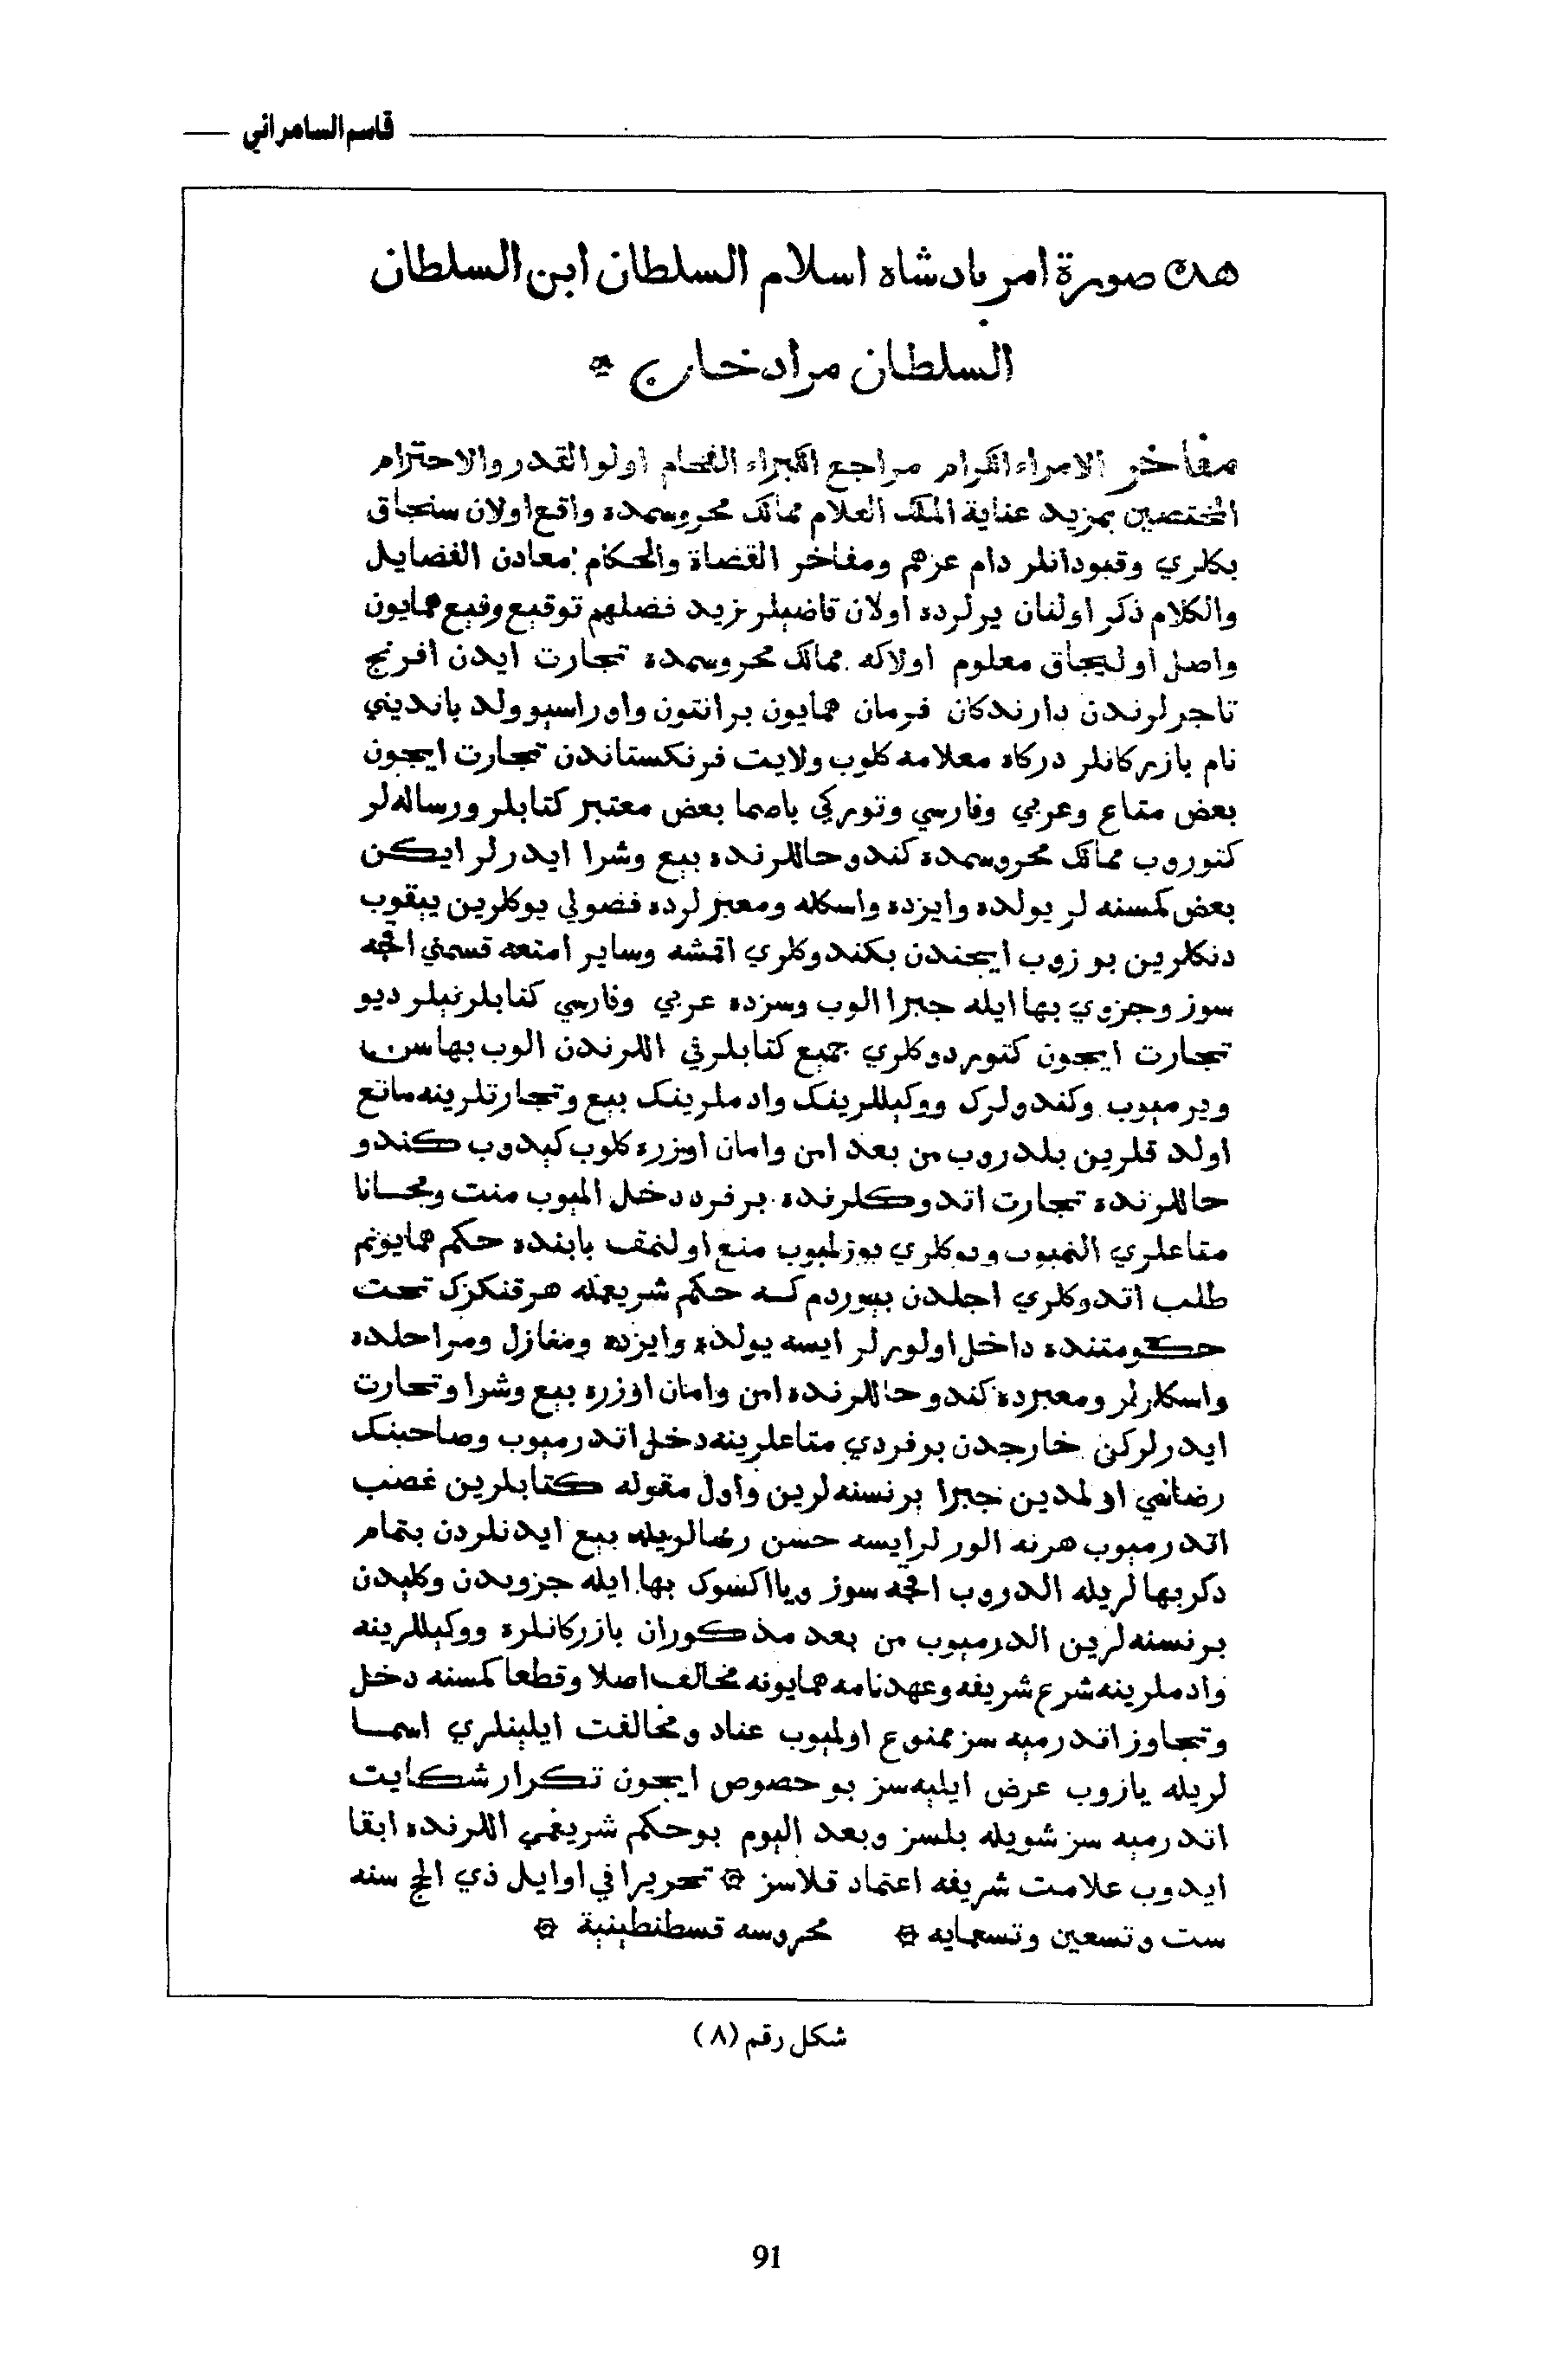 قاسم السامرائي
هذه صورة امر پادشاه اسلام السلطان ابن السلطان
السلطان مراد خان
مفاخر الامراء الكرام مراجع الكبراء الفخام اولو القدر والاحترام
المختصين بمزيد عناية الملك العلام ممالك محروسمده واقع اولان سنجاق
بكلري وقبودانلر دام عزهم ومفاخر القضاة والحكام معادن الفضايل
والكلام ذكر اولنان يرلرده اولان قاضيلر زيد فضلهم توقيع رفيع همايون
واصل اوليجاق معلوم اولاكه ممالك محروسمده تجارت ايدن افرنج
تاجرلرندن دارندكان فرمان همايون برانتون واوراسيو ولد بانديني
نام بازركانلر دركاه معلامه كلوب ولايت فرنكستاندن تجارت ايچون
بعض متاع وعربي وفارسي وتوركي باصما بعض معتبر كتابلر ورساله لر
كتوروب ممالك محروسمده كندو حاللرنده بيع وشرا ايدرلر ايكن
بعض كمسنه لر يولده وايزده واسكله ومعبرلرده فضولي يوكلرين ييقوب
دنكلرين بوزوب ايچندن بكندوكلري اقمشه وساير امتعه قسمني اقچه
سوز وجزوي بها ايله جبرا الوب وسزده عربي وفارسي كتابلر نيلر ديو
تجارت ايچون كتوردوكلري جميع كتابلرني اللرندن الوب بهاسن
ويرميوب وكندولرك ووكيللرينك وادملرينك بيع وتجارتلرينه مانع
اولدقلرين بلدروب من بعد امن وامان اوزره كلوب كيدوب كندو
حاللرنده تجارت اتدوكلرنده برفرد دخل الميوب منت ومجانا
متاعلري النميوب ويوكلري بوزلميوب منع اولنمق بابنده حكم همايونم
طلب اتدوكلري اجلدن بيوردم كه حكم شريفمله هرقنكزك تحت
حكومتنده داخل اولورلر ايسه يولده وايزده ومنازل ومراحلده
واسكلرلر ومعبرده كندو حاللرنده امن وامان اوزره بيع وشرا وتجارت
ايدرلركن خارجدن برفردي متاعلرينه دخل اتدرميوب وصاحبنك
رضاسي اولمدين جبرا برنسنه لرين واول مقوله كتابلرين غصب
اتدرميوب هرنه الورلرايسه حسن رضالريله بيع ايدنلردن بتمام
دكر بهالريله الدروب اقچه سوز ويا اكسوك بها ايله جزويدن وكليدن
برنسنه لرين الدرميوب من بعد مذكوران بازركانلره ووكيللرينه
وادملرينه شرع شريفه وعهدنامه همايونه مخالف اصلا وقطعا كمسنه دخل
وتجاوز اتدرميه سز ممنوع اولميوب عناد ومخالفت ايلينلري اسما
لريله يازوب عرض ايليه سز بو خصوص ايچون تكرار شكايت
اتدرميه سز شويله بلسز وبعد اليوم بوحكم شريفمي اللرنده ابقا
ايدوب علامت شريفه اعتماد قلاسز تحريرا في اوايل ذي الحج سنه
ست وتسعين وتسعمايه محروسه قسطنطينية
شكل رقم (٨)
91